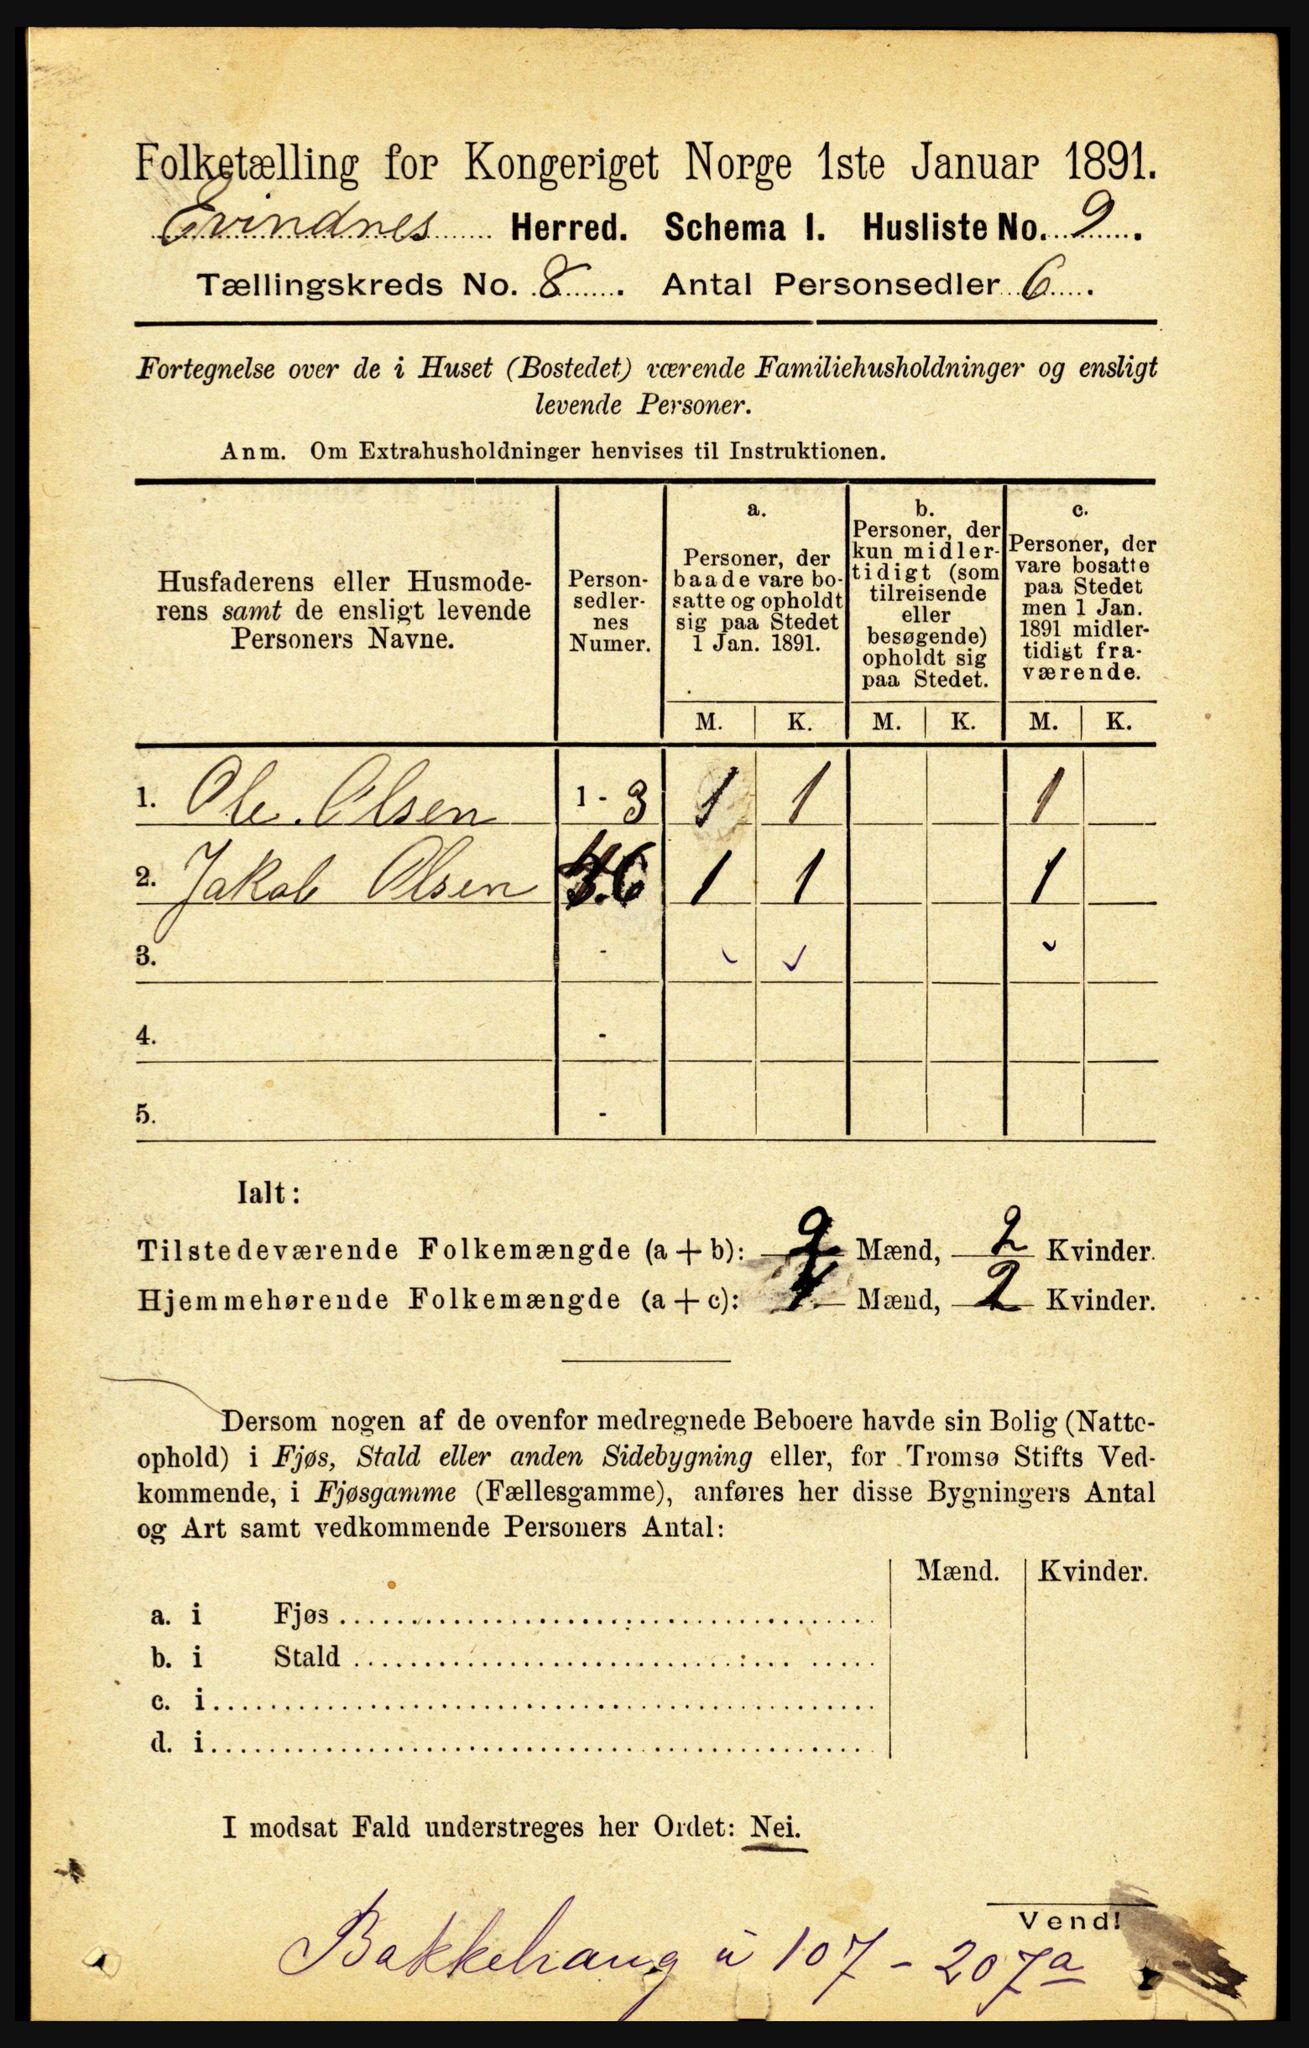 Folketælling for Kongeriget Norge 1ste Januar 1891.
Evindnes Herred. Schema I. Husliste No. 9.
Tællingskreds No. 8. Antal Personsedler 6.
Fortegnelse over de i Huset (Bostedet) værende Familiehusholdninger og ensligt
levende Personer.
Anm. Om Extrahusholdninger henvises til Instruktionen.
Husfaderens eller Husmode-
rens samt de ensligt levende
Personers Navne.
Person-
sedler-
nes
Numer.
a.
Personer, der
baade vare bo-
satte og opholdt
sig paa Stedet
1 Jan. 1891.
b.
Personer, der
kun midler-
tidigt (som
tilreisende
eller
besøgende)
opholdt sig
paa Stedet.
c.
Personer, der
vare bosatte
paa Stedet
men 1 Jan.
1891 midler-
tidigt fra-
værende.
M. K. M. K. M. K.
1. Ole Olsen 1 - 3 1 1 1
2. Jakob Olsen 4-6 1 1 1
3. -
4. -
5. -
Ialt:
Tilstedeværende Folkemængde (a + b): 2 Mænd, 2 Kvinder.
Hjemmehørende Folkemængde (a + c): 4 Mænd, 2 Kvinder.
Dersom nogen af de ovenfor medregnede Beboere havde sin Bolig (Natte-
ophold) i Fjøs, Stald eller anden Sidebygning eller, for Tromsø Stifts Ved-
kommende, i Fjøsgamme (Fællesgamme), anføres her disse Bygningers Antal
og Art samt vedkommende Personers Antal:
Mænd. Kvinder.
a. i Fjøs
b. i Stald
c. i
d. i
I modsat Fald understreges her Ordet: Nei.
Vend!
Bakkehaug u 107 - 207a